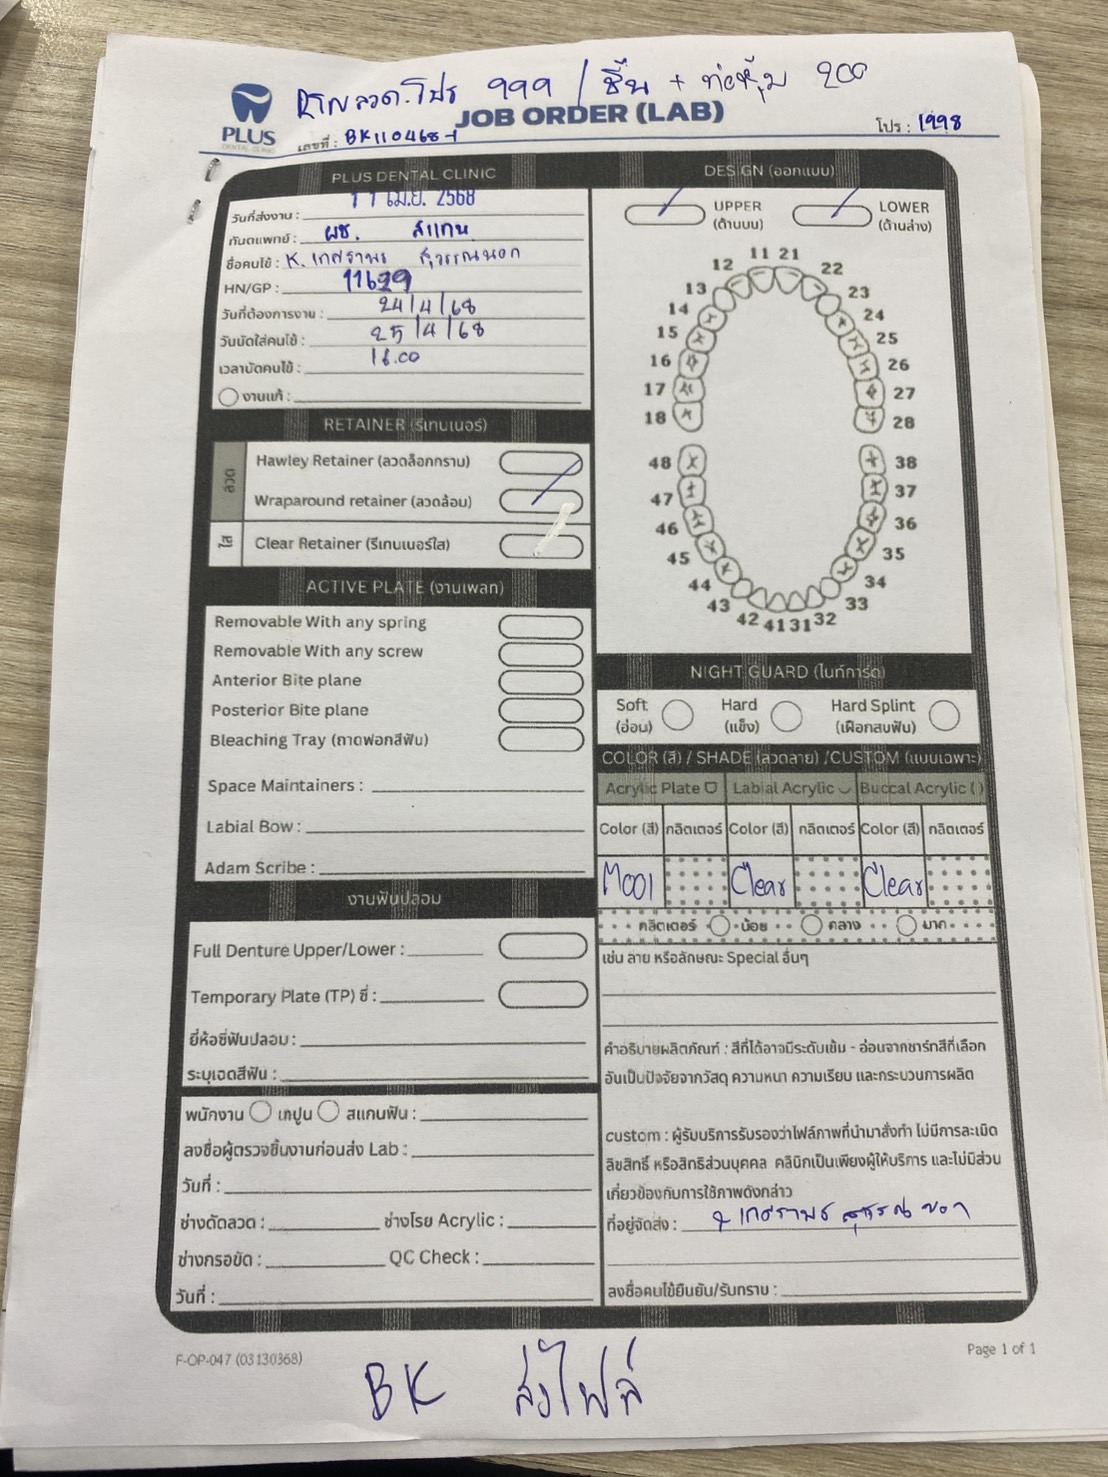 ลวด โปร 999 / ชิ้น + ท่อหุ้ม 200
PLUS
DENTAL CLINIC
JOB ORDER (LAB)
เลขที่ : BK110468-1
โปร : 1998
PLUS DENTAL CLINIC
วันที่ส่งงาน : 11 เม.ย. 2568
ทันตแพทย์ : ผช. สแกน
ชื่อคนไข้ : K. เกศราพร สุวรรณนอก
HN/GP : 11629
วันที่ต้องการงาน : 24/4/68
วันนัดใส่คนไข้ : 25/4/68
เวลานัดคนไข้ : 16.00
งานแก้ :
RETAINER (รีเทนเนอร์)
ลวด
Hawley Retainer (ลวดล็อกกราม)
Wraparound retainer (ลวดล้อม)
ใส
Clear Retainer (รีเทนเนอร์ใส)
ACTIVE PLATE (งานเพลท)
Removable With any spring
Removable With any screw
Anterior Bite plane
Posterior Bite plane
Bleaching Tray (ถาดฟอกสีฟัน)
Space Maintainers :
Labial Bow :
Adam Scribe :
งานฟันปลอม
Full Denture Upper/Lower :
Temporary Plate (TP) ซี่ :
ยี่ห้อซี่ฟันปลอม :
ระบุเฉดสีฟัน :
พนักงาน เทปูน สแกนฟัน :
ลงชื่อผู้ตรวจชิ้นงานก่อนส่ง Lab :
วันที่ :
ช่างดัดลวด : ช่างโรย Acrylic :
ช่างกรอขัด : QC Check :
วันที่ :
DESIGN (ออกแบบ)
UPPER (ด้านบน)
LOWER (ด้านล่าง)
11 21
12 22
13 23
14 24
15 25
16 26
17 27
18 28
48 38
47 37
46 36
45 35
44 34
43 33
42 41 31 32
NIGHT GUARD (ไนท์การ์ด)
Soft (อ่อน)
Hard (แข็ง)
Hard Splint (เฝือกสบฟัน)
COLOR (สี) / SHADE (ลวดลาย) /CUSTOM (แบบเฉพาะ)
Acrylic Plate Labial Acrylic Buccal Acrylic ( )
Color (สี) กลิตเตอร์ Color (สี) กลิตเตอร์ Color (สี) กลิตเตอร์
M001 Clear Clear
กลิตเตอร์ น้อย กลาง มาก
เช่น ลาย หรือลักษณะ Special อื่นๆ
คำอธิบายผลิตภัณฑ์ : สีที่ได้อาจมีระดับเข้ม - อ่อนจากชาร์ทสีที่เลือก
อันเป็นปัจจัยจากวัสดุ ความหนา ความเรียบ และกระบวนการผลิต
custom : ผู้รับบริการรับรองว่าไฟล์ภาพที่นำมาสั่งทำ ไม่มีการละเมิด
ลิขสิทธิ์ หรือสิทธิส่วนบุคคล คลินิกเป็นเพียงผู้ให้บริการ และไม่มีส่วน
เกี่ยวข้องกับการใช้ภาพดังกล่าว
ที่อยู่จัดส่ง : เกศราพร สุวรรณนอก
ลงชื่อคนไข้ยืนยัน/รับทราบ :
F-OP-047 (03130368)
Page 1 of 1
BK ส่งไฟล์